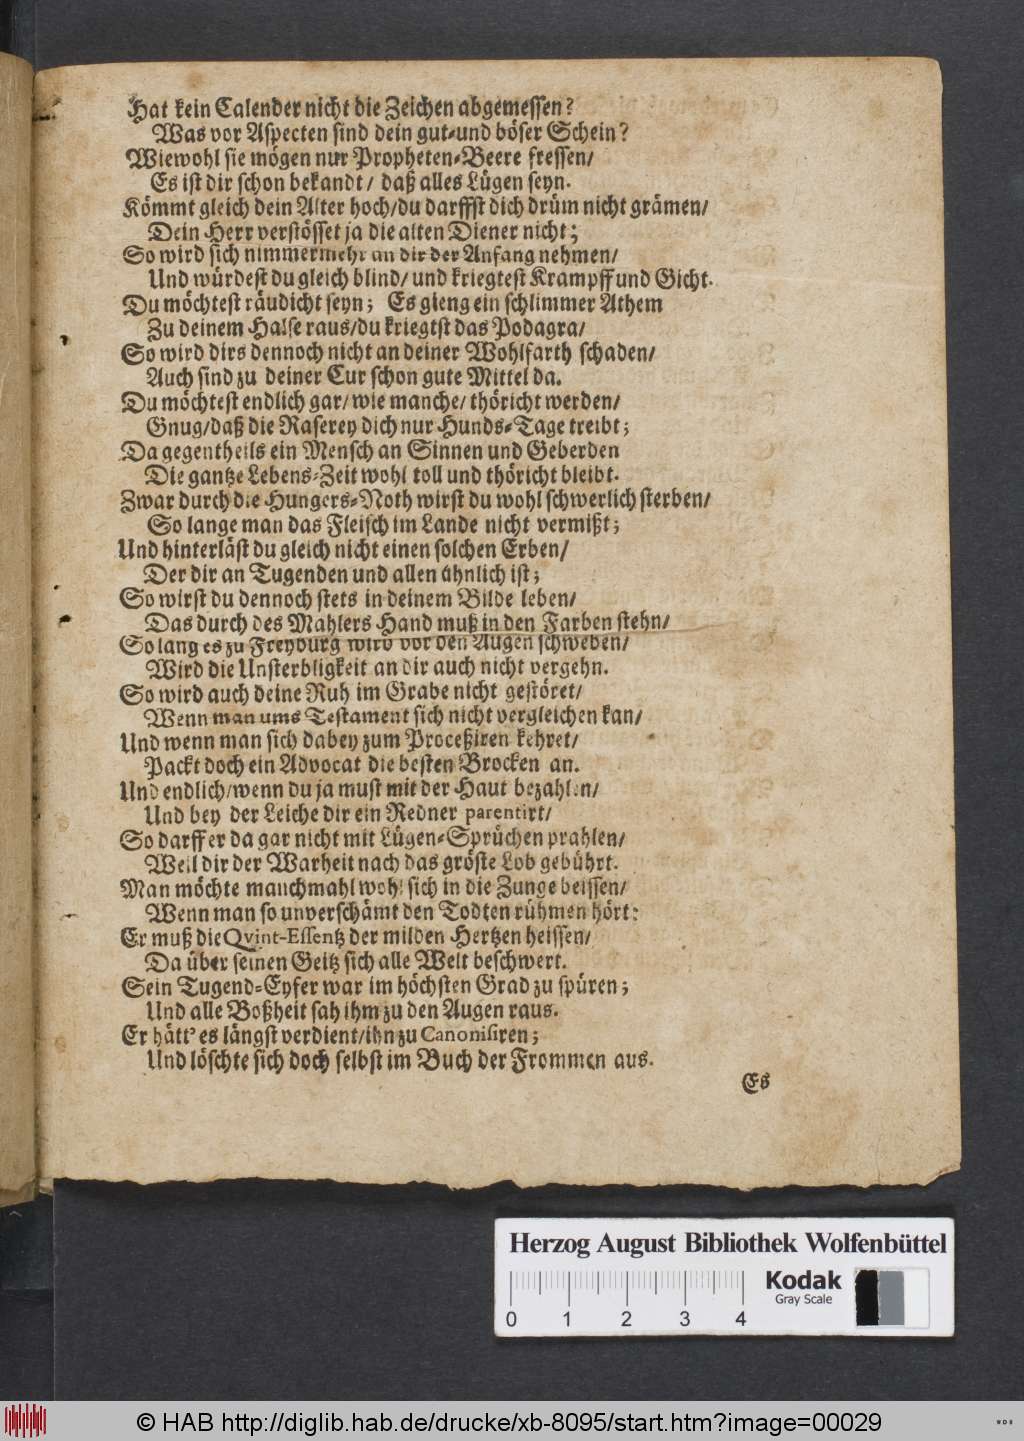 Hat kein Calender nicht die Zeichen abgemessen?
Was vor Aspecten sind dein gut-und böser Schein?
Wiewohl sie mögen nur Propheten-Beere fressen/
Es ist dir schon bekandt/ daß alles Lügen seyn.
Kömmt gleich dein Alter hoch/du darffst dich drüm nicht grämen/
Dein Herr verstösset ja die alten Diener nicht;
So wird sich nimmermehr an dir der Anfang nehmen/
Und würdest du gleich blind/ und kriegtest Krampff und Gicht.
Du möchtest räudicht seyn; Es gieng ein schlimmer Athem
Zu deinem Halse raus/du kriegtst das Podagra/
So wird dirs dennoch nicht an deiner Wohlfarth schaden/
Auch sind zu deiner Cur schon gute Mittel da.
Du möchtest endlich gar/ wie manche/ thöricht werden/
Gnug/daß die Raserey dich nur Hunds-Tage treibt;
Da gegentheils ein Mensch an Sinnen und Geberden
Die gantze Lebens-Zeit wohl toll und thöricht bleibt.
Zwar durch die Hungers-Noth wirst du wohl schwerlich sterben/
So lange man das Fleisch im Lande nicht vermißt;
Und hinterläst du gleich nicht einen solchen Erben/
Der dir an Tugenden und allen ähnlich ist;
So wirst du dennoch stets in deinem Bilde leben/
Das durch des Mahlers Hand muß in den Farben stehn/
So lang es zu Freyburg wird vor den Augen schweben/
Wird die Unsterbligkeit an dir auch nicht vergehn.
So wird auch deine Ruh im Grabe nicht gestöret/
Wenn man ums Testament sich nicht vergleichen kan/
Und wenn man sich dabey zum Proceßiren kehret/
Packt doch ein Advocat die besten Brocken an.
Und endlich/wenn du ja must mit der Haut bezahlen/
Und bey der Leiche dir ein Redner parentirt/
So darff er da gar nicht mit Lügen-Sprüchen prahlen/
Weil dir der Warheit nach das gröste Lob gebührt.
Man möchte manchmahl wohl sich in die Zunge beissen/
Wenn man so unverschämt den Todten rühmen hört:
Er muß die Qvint-Essentz der milden Hertzen heissen/
Da über seinen Geitz sich alle Welt beschwert.
Sein Tugend-Eyfer war im höchsten Grad zu spüren;
Und alle Boßheit sah ihm zu den Augen raus.
Er hätt' es längst verdient/ihn zu Canonisiren;
Und löschte sich doch selbst im Buch der Frommen aus.
Es
Herzog August Bibliothek Wolfenbüttel
Kodak
Gray Scale
0 1 2 3 4
© HAB http://diglib.hab.de/drucke/xb-8095/start.htm?image=00029